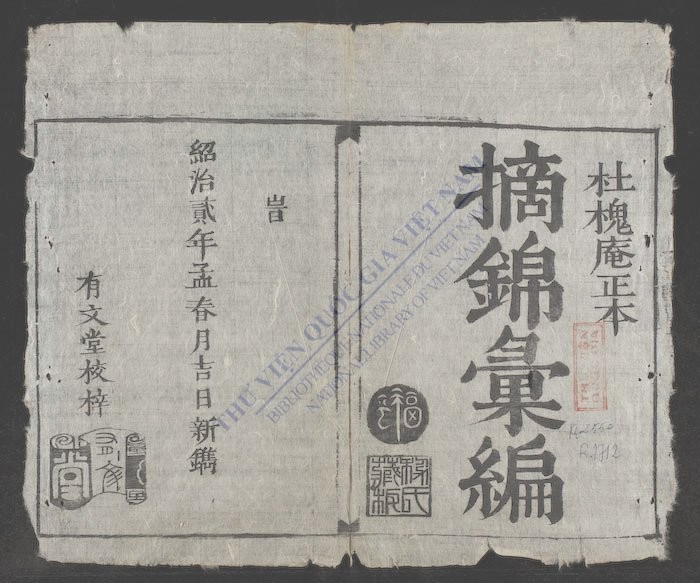 杜槐庵正本
摘錦彙編
福
藏板
皆
紹治貳年孟春月吉日新鐫
有文堂校梓
THƯ VIỆN QUỐC GIA VIỆT NAM
BIBLIOTHÈQUE NATIONALE DU VIETNAM
NATIONAL LIBRARY OF VIETNAM